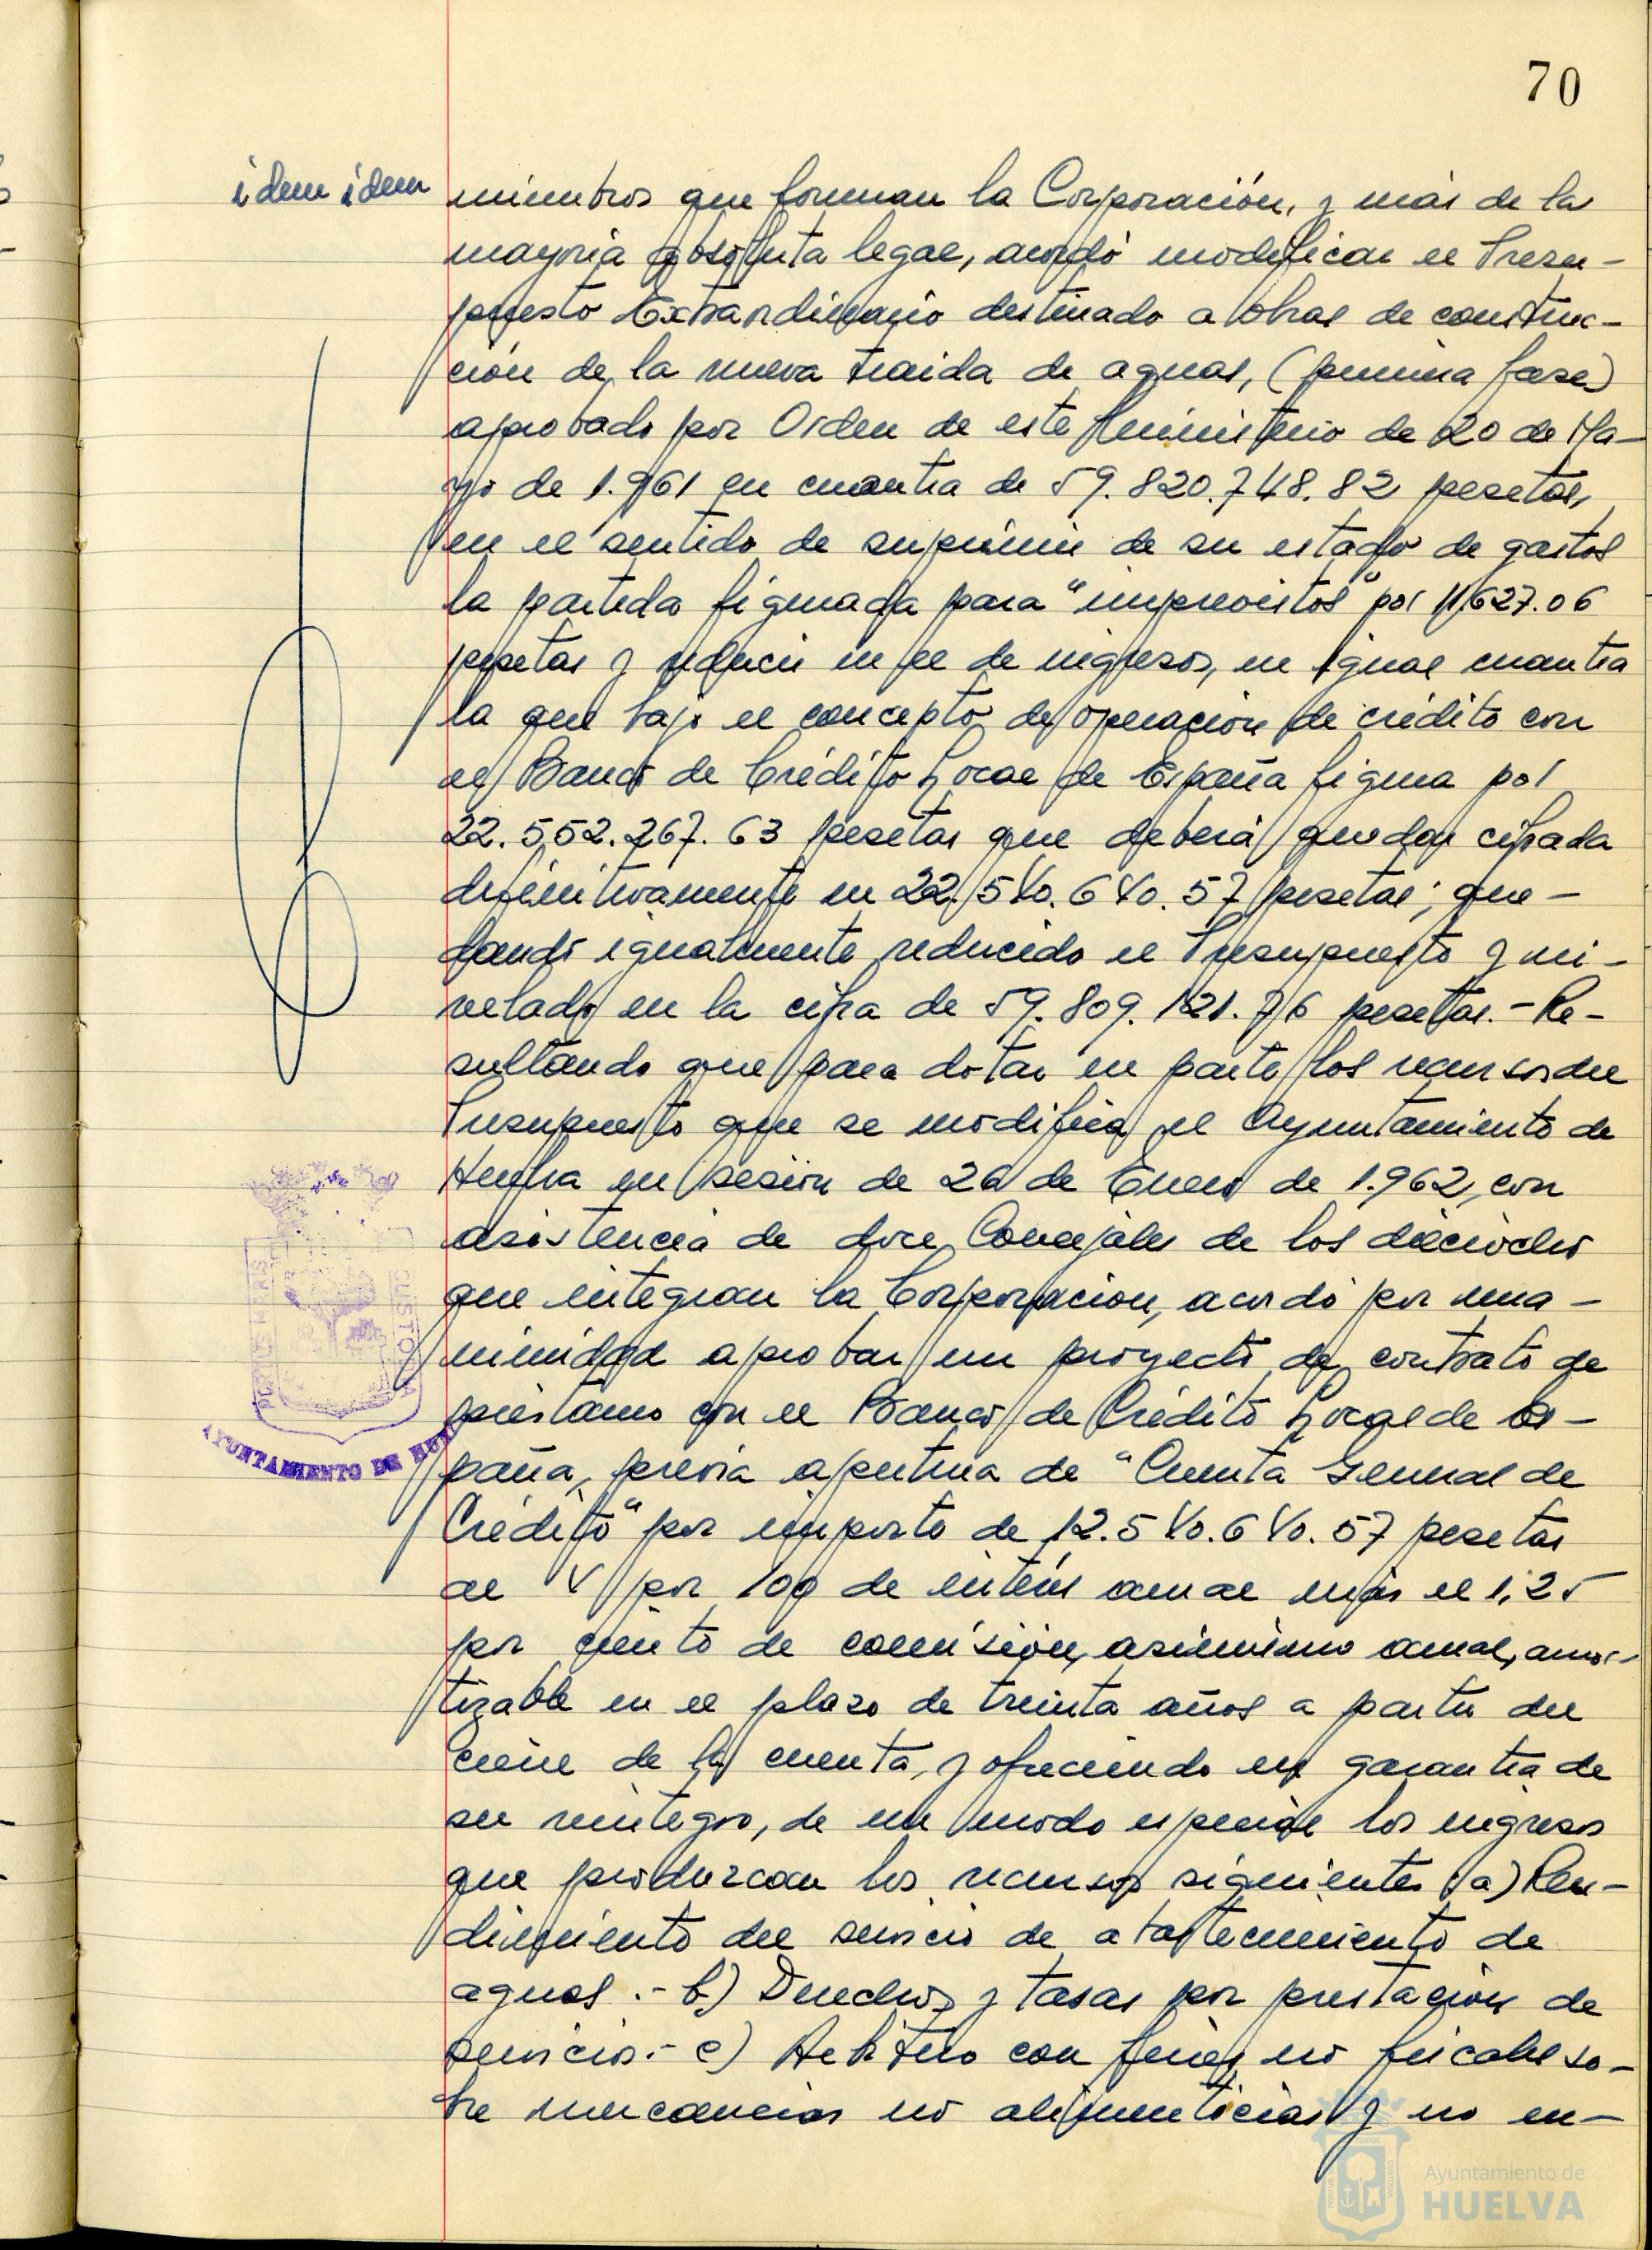 70
idem idem
miembros que forman la Corporación, y más de la
mayoria absoluta legal, acordó modificar el Presu-
puesto Extraordinario destinado a obras de construc-
ción de la nueva traida de aguas, (primera fase)
aprobado por Orden de este Ministerio de 20 de Ma-
yo de 1.961 en cuantia de 59.820.748.82 pesetas,
en el sentido de suprimir de su estado de gastos
la partida figurada para "imprevistos" por 11,627.06
pesetas y reducir en el de ingresos, en igual cuantia
la que bajo el concepto de operación de crédito con
el Banco de Crédito Local de España figura por
22.552.267.63 pesetas que deberá quedar cifrada
definitivamente en 22.540.640.57 pesetas; que-
dando igualmente reducido el Presupuesto y ni-
velado en la cifra de 59.809.121.76 pesetas.- Re-
sultando que para dotar en parte los recursos del
Presupuesto que se modifica el Ayuntamiento de
Huelva en sesión de 26 de Enero de 1.962, con
asistencia de doce Concejales de los dieciocho
que integran la Corporación, acordó por una-
nimidad aprobar un proyecto de contrato de
préstamo con el Banco de Crédito Local de Es-
paña, previa apertura de "Cuenta General de
Crédito" por importe de 12.540.640.57 pesetas
al 4 por 100 de interés anual más el 1,25
por ciento de comisión, asimismo anual, amor-
tizable en el plazo de treinta años a partir del
cierre de la cuenta, y ofreciendo en garantia de
su reintegro, de un modo especial los ingresos
que produzcan los recursos siguientes: a) Ren-
dimiento del servicio de abastecimiento de
aguas.- b) Derechos y tasas por prestación de
servicios.- c) Arbitrio con fines no fiscales so-
bre mercancias no alimenticias y no en-
PORTUS MARIS
CUSTODIA
AYUNTAMIENTO DE HUELVA
Ayuntamiento de
HUELVA